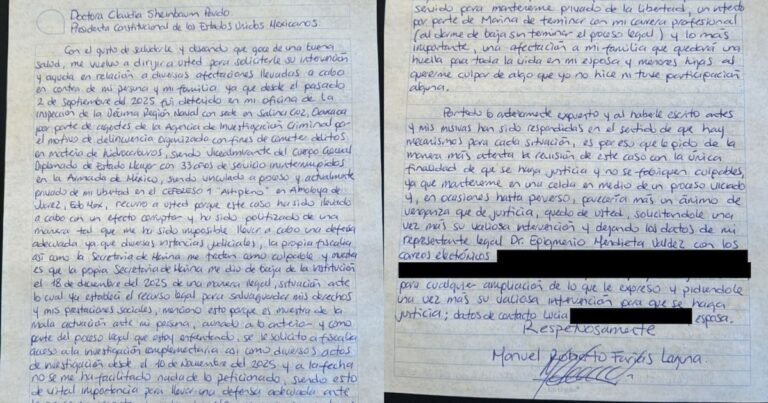 Doctora Claudia Sheinbaum Pardo
Presidenta Constitucional de los Estados Unidos Mexicanos.
Con el gusto de saludarle y deseando que goce de una buena
salud, me vuelvo a dirigir a usted para solicitarle su intervención
y ayuda en relación a diversas afectaciones llevadas a cabo
en contra de mi persona y mi familia ya que desde el pasado
2 de septiembre del 2025 fui detenido en mi oficina de la
inspección de la Décima Región Naval con sede en Salina Cruz, Oaxaca
por parte de agentes de la Agencia de Investigación Criminal por
el motivo de delincuencia organizada con fines de cometer delitos
en materia de hidrocarburos, siendo Vicealmirante del Cuerpo General
Diplomado de Estado Mayor con 33 años de servicio ininterrumpidos
en la Armada de México, siendo vinculado a proceso y actualmente
privado de mi libertad en el CEFERESO 1 "Altiplano" en Almoloya de
Juárez, Edo Mex, recurro a usted porque este caso ha sido llevado
a cabo con un efecto corruptor y ha sido politizado de una
manera tal que me ha sido imposible llevar a cabo una defensa
adecuada ya que diversas instancias judiciales, la propia fiscalía
así como la Secretaría de Marina me tratan como culpable y muestra
es que la propia Secretaría de Marina me dio de baja de la institución
el 18 de diciembre del 2025 de una manera ilegal, situación ante
lo cual ya establecí el recurso legal para salvaguardar mis derechos
y mis prestaciones sociales, menciono esto porque es muestra de la
mala actuación ante mi persona, aunado a lo anterior y como
parte del proceso legal que estoy enfrentando, se le solicitó a fiscalía
acceso a la investigación complementaria así como diversos actos
de investigación desde el 10 de Noviembre del 2025 y a la fecha
no se me ha facilitado nada de lo peticionado, siendo esto
de vital importancia para llevar una defensa adecuada ante
servido para mantenerme privado de la libertad, un
por parte de Marina de terminar con mi carrera profesional
(al darme de baja sin terminar el proceso legal) y lo más
importante, una afectación a mi familia que quedará una
huella para toda la vida en mi esposa y menores hijas al
quererme culpar de algo que yo no hice ni tuve participación
alguna.
Por todo lo anteriormente expuesto y al haberle escrito antes
y mis misivas han sido respondidas en el sentido de que hay
mecanismos para cada situación, es por eso que le pido de la
manera más atenta la revisión de este caso con la única
finalidad de que se haga justicia y no se fabriquen culpables,
ya que mantenerme en una celda en medio de un proceso viciado
y, en ocasiones hasta perverso, parecería más un ánimo de
venganza que de justicia, quedo de usted, solicitándole una
vez más su valiosa intervención y dejando los datos de mi
representante legal Dr. Epigmenio Mendieta Valdez con los
correos electrónicos
para cualquier ampliación de lo que le expreso y pidiéndole
una vez más su valiosa intervención para que se haga
justicia; datos de contacto Lucía esposa.
Respetuosamente
Manuel Roberto Farías Laguna.